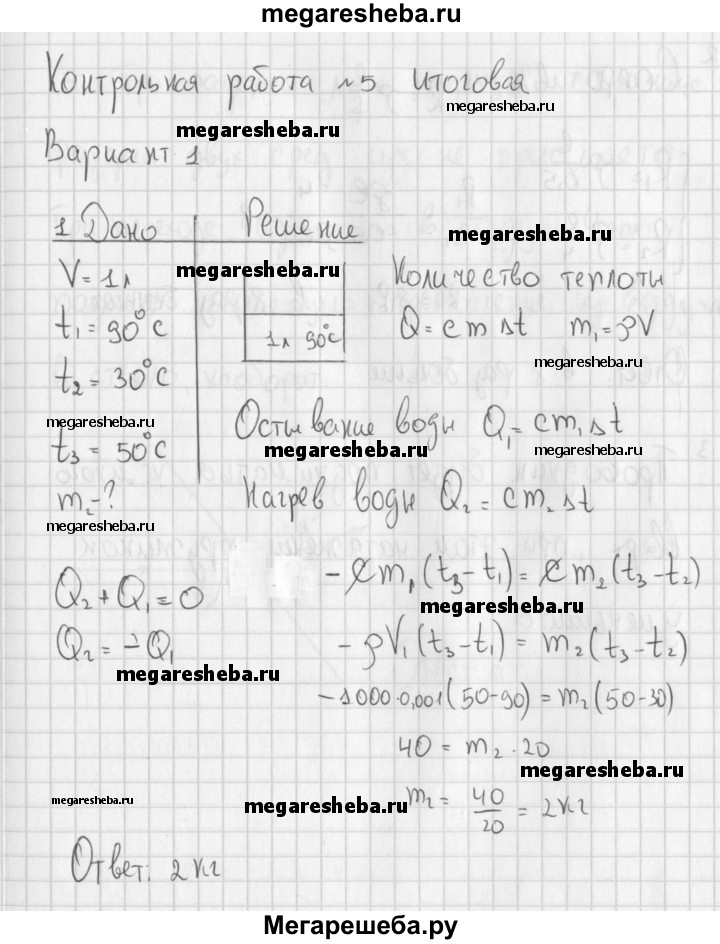 megaresheba.ru
Контрольная работа №5 итоговая
megaresheba.ru
megaresheba.ru
Вариант 1
1 Дано Решение
megaresheba.ru
V = 1л
megaresheba.ru
Количество теплоты
t₁ = 90°C
1л 90°C
Q = cmΔt m₁ = ρV
megaresheba.ru
t₂ = 30°C
megaresheba.ru
Остывание воды Q₁ = cm₁Δt
megaresheba.ru
t₃ = 50°C
m₂ - ?
Нагрев воды Q₂ = cm₂Δt
megaresheba.ru
Q₂ + Q₁ = 0
- cm₁(t₃ - t₁) = cm₂(t₃ - t₂)
megaresheba.ru
Q₂ = - Q₁
- ρV₁(t₃ - t₁) = m₂(t₃ - t₂)
megaresheba.ru
- 1000·0,001(50-90) = m₂(50-30)
40 = m₂·20
megaresheba.ru
megaresheba.ru
megaresheba.ru
m₂ = 40/20 = 2кг
Ответ: 2кг
Мегарешеба.ру